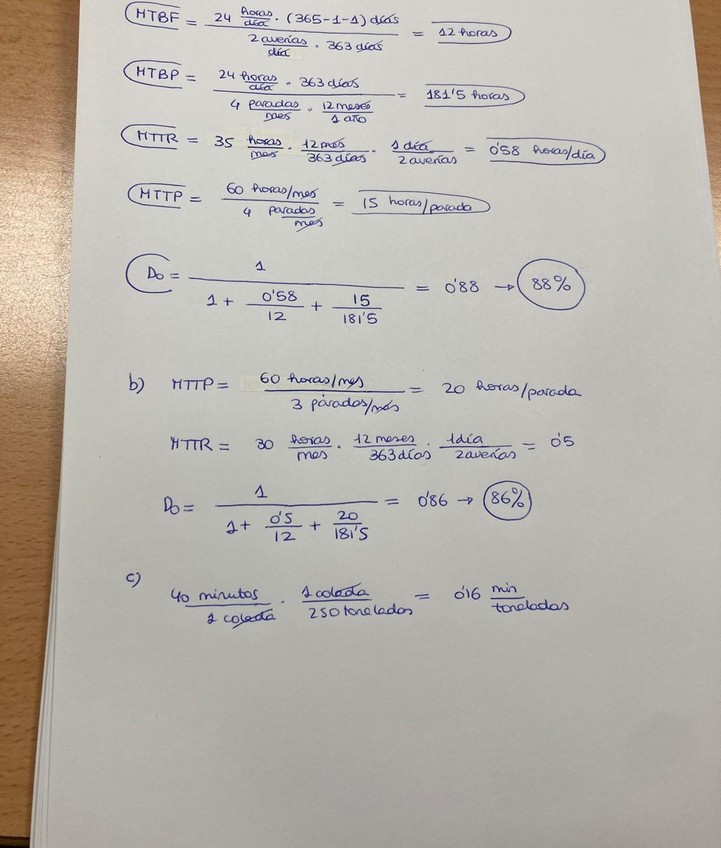 MTBF = 24 horas/día · (365-1-1) días / 2 averías/día · 363 días = 12 horas
MTBP = 24 horas/día · 363 días / 4 paradas/mes · 12 meses/1 año = 181'5 horas
MTTR = 35 horas/mes · 12 mes/363 días · 1 día/2 averías = 0'58 horas/día
MTTP = 60 horas/mes / 4 paradas/mes = 15 horas/parada
Do = 1 / 1 + 0'58/12 + 15/181'5 = 0'88 → 88%
b) MTTP = 60 horas/mes / 3 paradas/mes = 20 horas/parada
MTTR = 30 horas/mes · 12 meses/363 días · 1 día/2 averías = 0'5
Do = 1 / 1 + 0'5/12 + 20/181'5 = 0'86 → 86%
c)
40 minutos/1 colada · 1 colada/250 toneladas = 0'16 min/toneladas